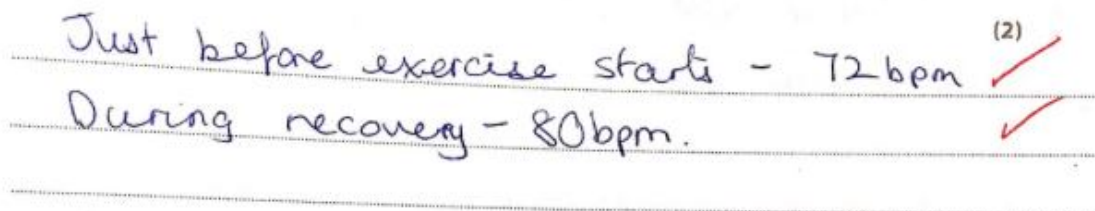 (2)
Just before exercise starts - 72bpm
During recovery - 80bpm.